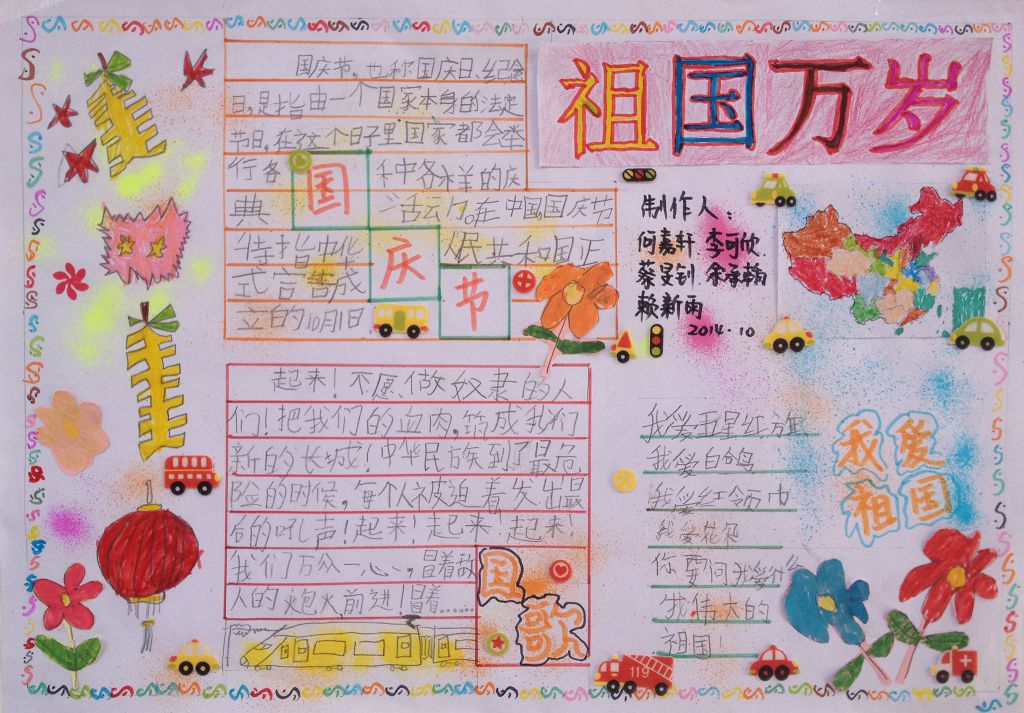 祖国万岁
国庆节,也称国庆日、纪念
日,是指由一个国家本身的法定
节日,在这个日子里国家都会举
行各种各样的庆
典活动。在中国,国庆节
特指中华人民共和国正
式宣告成
立的10月1日
国庆节
制作人:
何嘉轩 李可欣
赖新雨
2014.10
起来!不愿做奴隶的人
们!把我们的血肉,筑成我们
新的长城!中华民族到了最危
险的时候,每个人被迫着发出最
后的吼声!起来!起来!起来!
我们万众一心,冒着敌
人的炮火前进!冒着......
国歌
我爱五星红旗
我爱白鸽
我爱红领巾
我爱花朵
你要问我爱什么
我伟大的
祖国
我爱
祖国
119